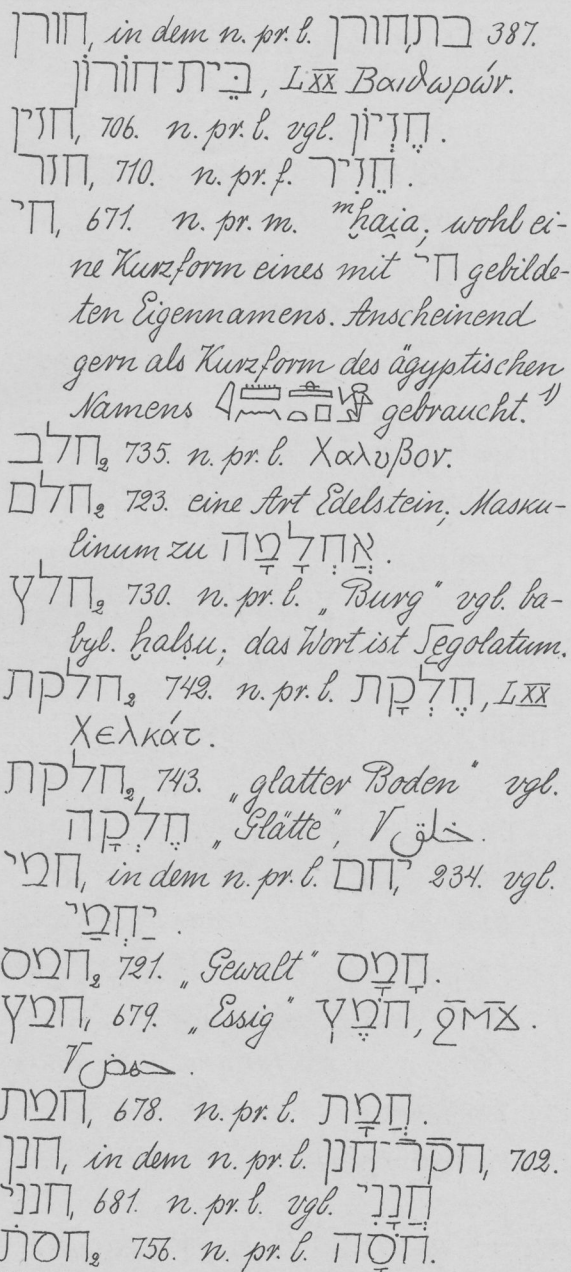 חורן, in dem n. pr. l. בתחורן 387.
בֵּית־חוֹרוֹן, LXX Βαιθωρών.
חזין, 706. n. pr. l. vgl. חֶזְיוֹן.
חזר, 710. n. pr. f. חֵזִיר.
חי, 671. n. pr. m. ᵐḫai̯a; wohl ei-
ne Kurzform eines mit חי gebilde-
ten Eigennamens. Anscheinend
gern als Kurzform des ägyptischen
Namens gebraucht.¹⁾
חלב₂ 735. n. pr. l. Χαλυβον.
חלם₂ 723. eine Art Edelstein; Masku-
linum zu אֲחְלָמָה.
חלץ₂ 730. n. pr. l. „Burg“ vgl. ba-
byl. ḫalṣu; das Wort ist Segolatum.
חלקת₂ 742. n. pr. l. חֶלְקָת, LXX
Χελκάτ.
חלקת₂ 743. „glatter Boden“ vgl.
חֶלְקָה „Glätte“, √خلق.
חמי, in dem n. pr. l. יחם, 234. vgl.
יַחְמַי.
חמס₂ 721. „Gewalt“ חָמָס.
חמץ, 679. „Essig“ חֹמֶץ, ϩⲙϫ.
√حمض.
חמת, 678. n. pr. l. חֲמָת.
חנן, in dem n. pr. l. חקר־חנן, 702.
חנני, 681. n. pr. l. vgl. חֲנָנִי
חסת₂ 756. n. pr. l. חֹסָה.